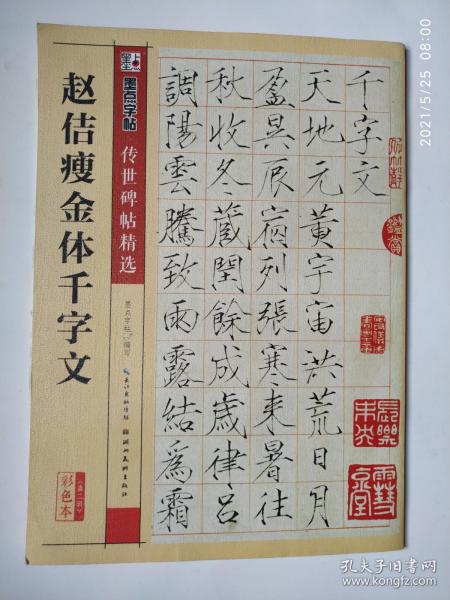 赵佶瘦金体千字文
墨点
墨点字帖
传世碑帖精选
墨点字帖 编写
长江出版传媒
湖北美术出版社
(第二辑)
彩色本
千字文
天地元黃宇宙洪荒日月
盈昃辰宿列張寒来暑往
秋收冬蔵閏餘成歳律呂
調陽雲騰致雨露結爲霜
長樂未央
2021/5/25 08:00
孔夫子旧书网
www.kongfz.com